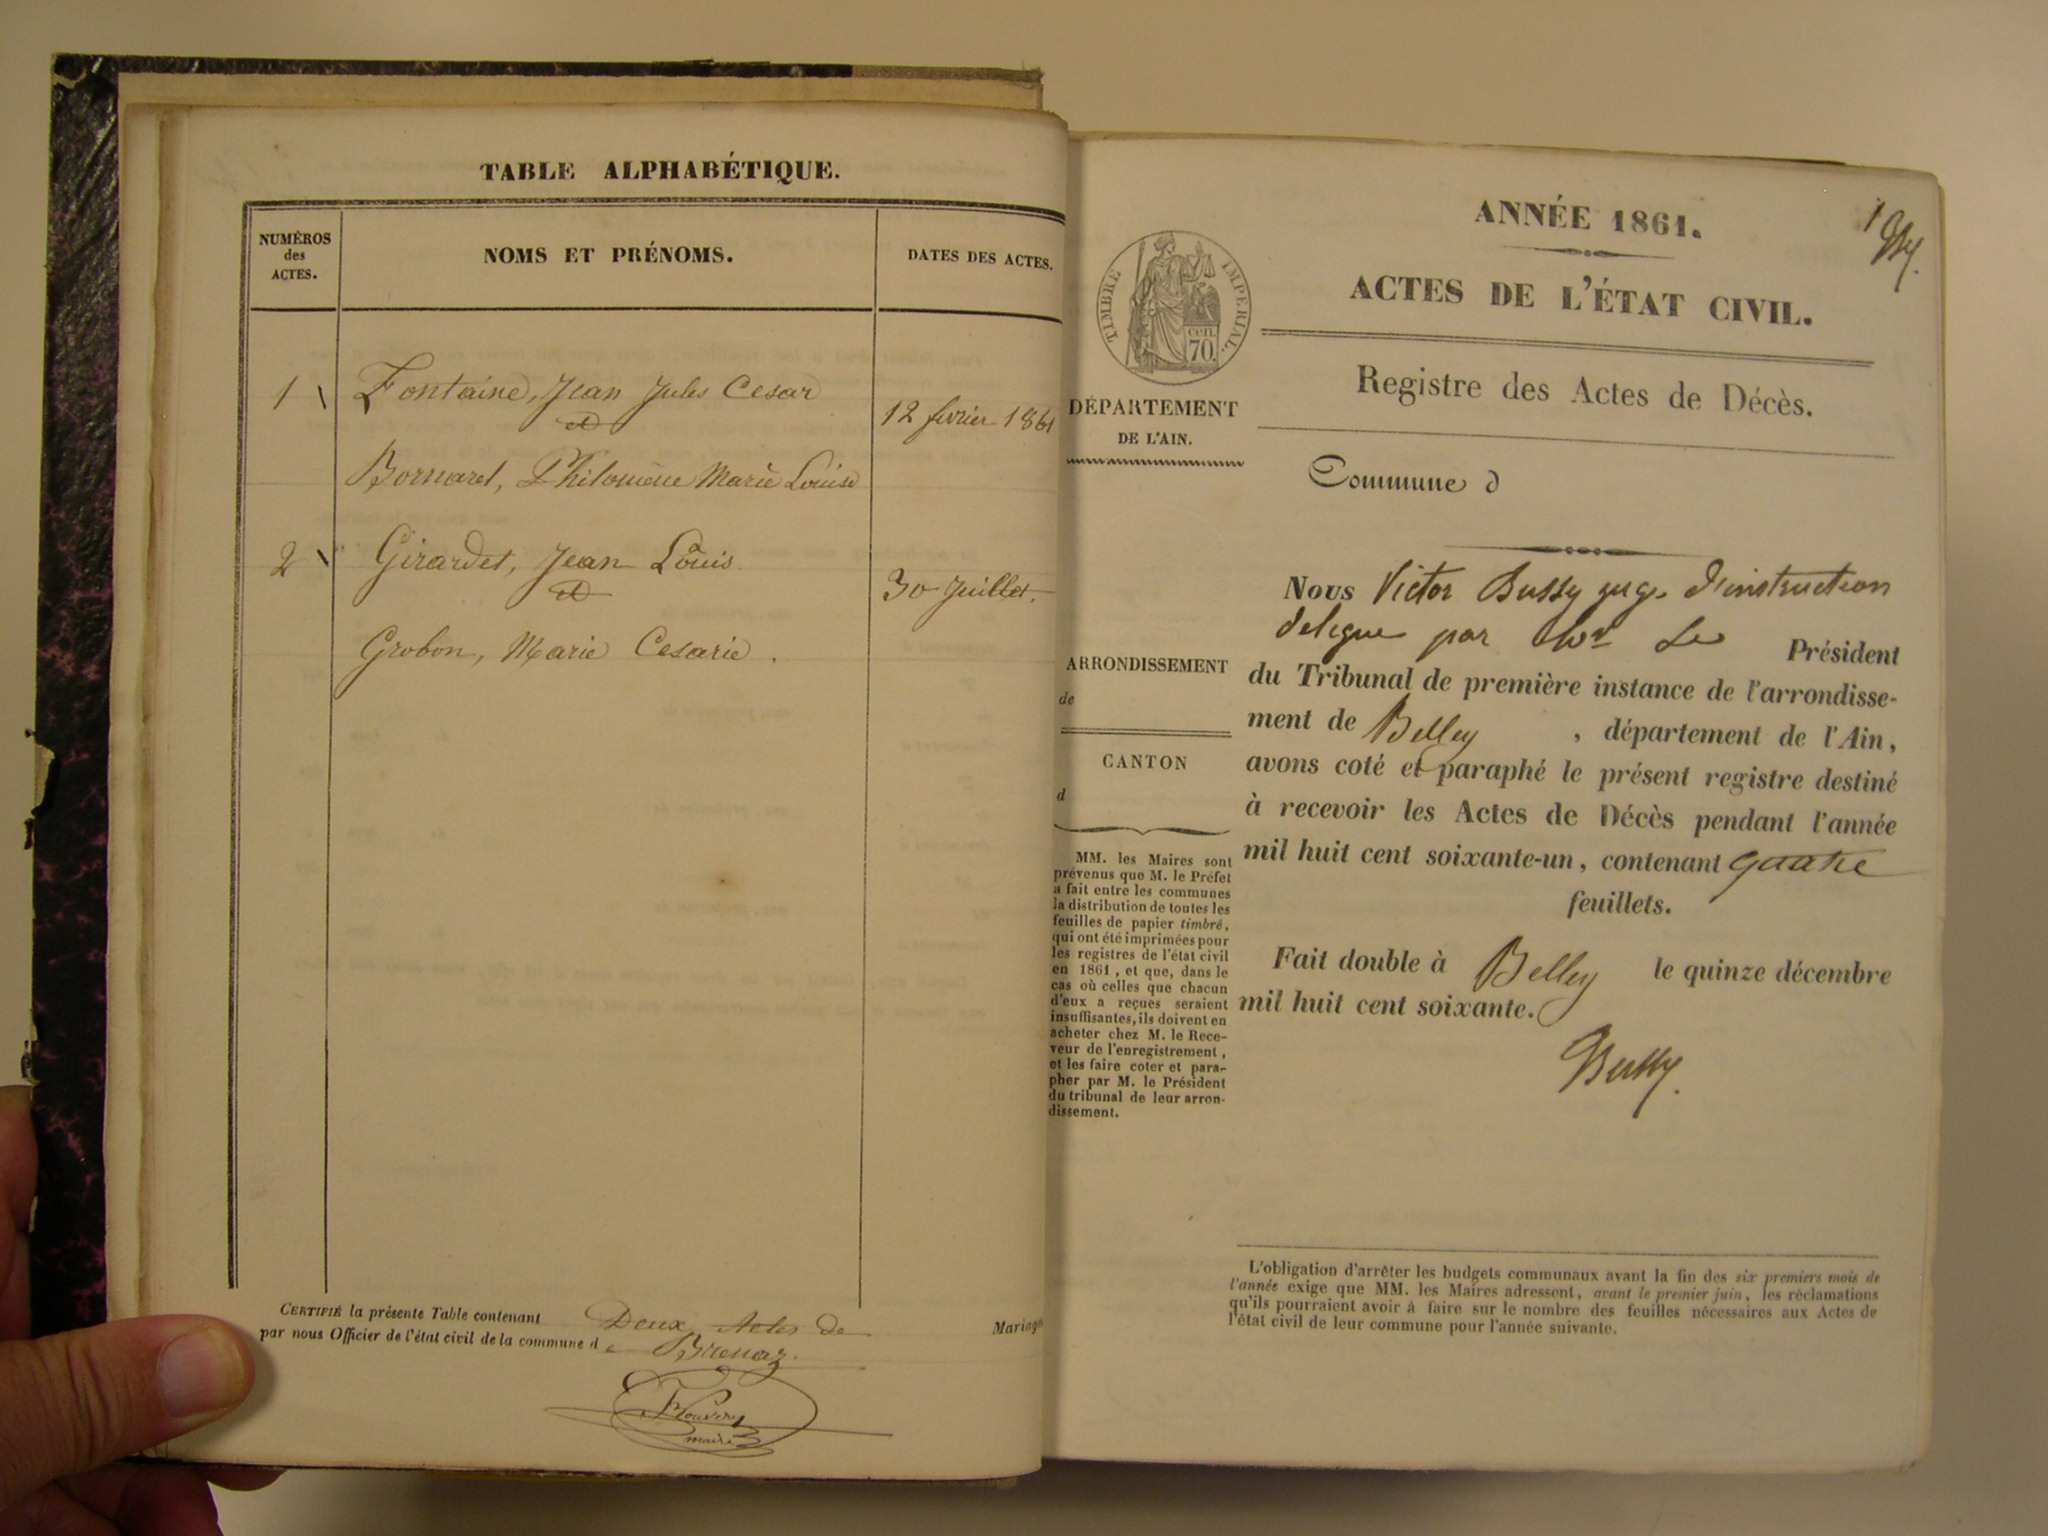 TABLE ALPHABÉTIQUE.
NUMÉROS
des
ACTES.
NOMS ET PRÉNOMS.
DATES DES ACTES.
1
Fontaine, Jean Jules Cesar
et
12 fevrier 1861
Bornarel, Philomène Marie Louise
2
Girardet, Jean Louis
et
30 Juillet.
Grobon, Marie Cesarie.
CERTIFIÉ la présente Table contenant Deux Actes de Mariage
par nous Officier de l'état civil de la commune de Brenaz.
maire
1
ANNÉE 1861.
ACTES DE L'ÉTAT CIVIL.
TIMBRE IMPERIAL.
cen.
70.
Registre des Actes de Décès.
DÉPARTEMENT
DE L'AIN.
Commune d
ARRONDISSEMENT
de
CANTON
d
MM. les Maires sont
prévenus que M. le Préfet
a fait entre les communes
la distribution de toutes les
feuilles de papier timbré,
qui ont été imprimées pour
les registres de l'état civil
en 1861, et que, dans le
cas où celles que chacun
d'eux a reçues seraient
insuffisantes, ils doivent en
acheter chez M. le Rece-
veur de l'enregistrement,
et les faire coter et para-
pher par M. le Président
du tribunal de leur arron-
dissement.
Nous Victor Bussy juge d'instruction
delegue par Mr Le Président
du Tribunal de première instance de l'arrondisse-
ment de Belley, département de l'Ain,
avons coté et paraphé le présent registre destiné
à recevoir les Actes de Décès pendant l'année
mil huit cent soixante-un, contenant quatre
feuillets.
Fait double à Belley le quinze décembre
mil huit cent soixante.
Bussy.
L'obligation d'arrêter les budgets communaux avant la fin des six premiers mois de
l'année exige que MM. les Maires adressent, avant le premier juin, les réclamations
qu'ils pourraient avoir à faire sur le nombre des feuilles nécessaires aux Actes de
l'état civil de leur commune pour l'année suivante.